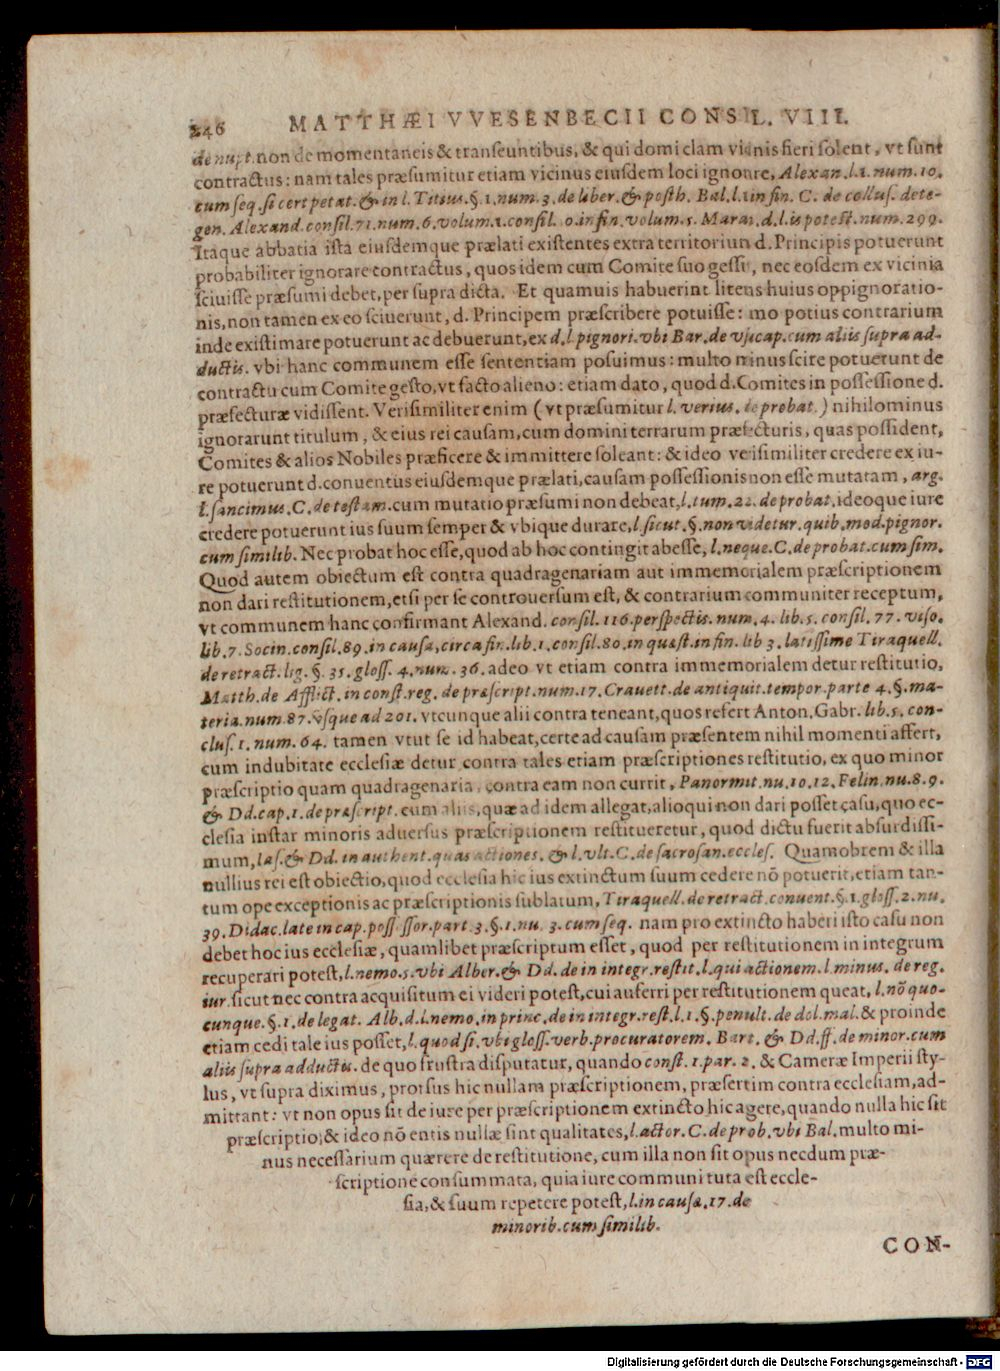 246 MATTHÆI VVESENBECII CONSIL. VIII.
de nupt. non de momentaneis & transeuntibus, & qui domi clam vicinis fieri solent, vt sunt
contractus: nam tales præsumitur etiam vicinus eiusdem loci ignorare, Alexan. l. 1. num. 10.
cum seq. si cert petat. & in l. Titius. §. 1. num. 3. de liber. & posth. Bal. l. 1. in fin. C. de collus. dete-
gen. Alexand. consil. 71. num. 6. volum. 1. consil. 0. in fin. volum. 5. Maran. d. l. is potest. num. 299.
Itaque abbatia ista eiusdemque prælati existentes extra territorium d. Principis potuerunt
probabiliter ignorare contractus, quos idem cum Comite suo gessit, nec eosdem ex vicinia
sciuisse præsumi debet, per supra dicta. Et quamuis habuerint literas huius oppignoratio-
nis, non tamen ex eo sciuerunt, d. Principem præscribere potuisse: imo potius contrarium
inde existimare potuerunt ac debuerunt, ex d. l. pignori. vbi Bar. de vsucap. cum aliis supra ad-
ductis. vbi hanc communem esse sententiam posuimus: multo minus scire potuerunt de
contractu cum Comite gesto, vt facto alieno: etiam dato, quod d. Comites in possessione d.
præfecturæ vidissent. Verisimiliter enim (vt præsumitur l. verius. de probat.) nihilominus
ignorarunt titulum, & eius rei causam, cum domini terrarum præfecturis, quas possident,
Comites & alios Nobiles præficere & immittere soleant: & ideo verisimiliter credere ex iu-
re potuerunt d. conuentus eiusdemque prælati, causam possessionis non esse mutatam, arg.
l. sancimus. C. de testam. cum mutatio præsumi non debeat, l. tum. 22. de probat. ideoque iure
credere potuerunt ius suum semper & vbique durare, l. sicut. §. non videtur. quib. mod. pignor.
cum similib. Nec probat hoc esse, quod ab hoc contingit abesse, l. neque. C. de probat. cum sim.
Quod autem obiectum est contra quadragenariam aut immemorialem præscriptionem
non dari restitutionem, etsi per se controuersum est, & contrarium communiter receptum,
vt communem hanc confirmant Alexand. consil. 116. perspectis. num. 4. lib. 5. consil. 77. viso.
lib. 7. Socin. consil. 89. in causa, circa fin. lib. 1. consil. 80. in quæst. in fin. lib 3. latissime Tiraquell.
de retract. lig. §. 35. gloss. 4. num. 36. adeo vt etiam contra immemorialem detur restitutio,
Matth. de Afflict. in const. reg. de præscript. num. 17. Crauett. de antiquit. tempor. parte 4. §. ma-
teria. num. 87. vsque ad 201. vtcunque alii contra teneant, quos refert Anton. Gabr. lib. 5. con-
clus. 1. num. 64. tamen vtut se id habeat, certe ad causam præsentem nihil momenti affert,
cum indubitate ecclesiæ detur contra tales etiam præscriptiones restitutio, ex quo minor
præscriptio quam quadragenaria, contra eam non currit, Panormit. nu. 10. 12. Felin. nu. 8. 9.
& Dd. cap. 1. de præscript. cum aliis, quæ ad idem allegat, alioqui non dari posset casu, quo ec-
clesia instar minoris aduersus præscriptionem restitueretur, quod dictu fuerit absurdissi-
mum, Ias. & Dd. in authent. quas actiones. & l. vlt. C. de sacrosan. eccles. Quamobrem & illa
nullius rei est obiectio, quod ecclesia hic ius extinctum suum cedere nō potuerit, etiam tan-
tum ope exceptionis ac præscriptionis sublatum, Tiraquell. de retract. conuent. §. 1. gloss. 2. nu.
39. Didac. late in cap. possessor. part. 3. §. 1. nu. 3. cum seq. nam pro extincto haberi isto casu non
debet hoc ius ecclesiæ, quamlibet præscriptum esset, quod per restitutionem in integrum
recuperari potest, l. nemo. 5. vbi Alber. & Dd. de in integr. restit. l. qui actionem. l. minus. de reg.
iur. sicut nec contra acquisitum ei videri potest, cui auferri per restitutionem queat, l. nō quo-
cunque. §. 1. de legat. Alb. d. l. nemo. in princ. de in integr. rest. l. 1. §. penult. de dol. mal. & proinde
etiam cedi tale ius posset, l. quod si. vbi gloss. verb. procuratorem. Bart. & Dd. ff. de minor. cum
aliis supra adductis. de quo frustra disputatur, quando const. 1. par. 2. & Cameræ Imperii sty-
lus, vt supra diximus, prorsus hic nullam præscriptionem, præsertim contra ecclesiam, ad-
mittant: vt non opus sit de iure per præscriptionem extincto hic agere, quando nulla hic sit
præscriptio, & ideo nō entis nullæ sint qualitates, l. actor. C. de prob. vbi Bal. multo mi-
nus necessarium quærere de restitutione, cum illa non sit opus necdum præ-
scriptione consummata, quia iure communi tuta est eccle-
sia, & suum repetere potest, l. in causæ. 17. de
minorib. cum similib.
CON-
Digitalisierung gefördert durch die Deutsche Forschungsgemeinschaft - DFG